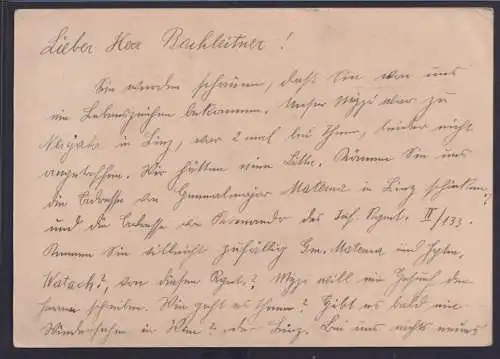 Lieber Herr Bachleitner!
Sie werden schauen, daß Sie von uns
ein Lebenszeichen bekommen. Unser Mizzi war zu
Neujahr in Linz, war 2 mal bei Ihnen, leider nicht
angetroffen. Wir hätten eine Bitte. Können Sie uns
die Adresse von Generalmajor Materna in Linz schicken?
und die Adresse von Kommando des Inf. Rgmt. II/133.
Kennen Sie vielleicht zufällig Gm. Materna und Hptm.
Watach?, von diesem Rgmt.? Mizzi will ein Gesuch den
Herren schreiben. Wie geht es Ihnen? Gibt es bald ein
Wiedersehen in Wien? oder Linz. Bei uns nichts neues